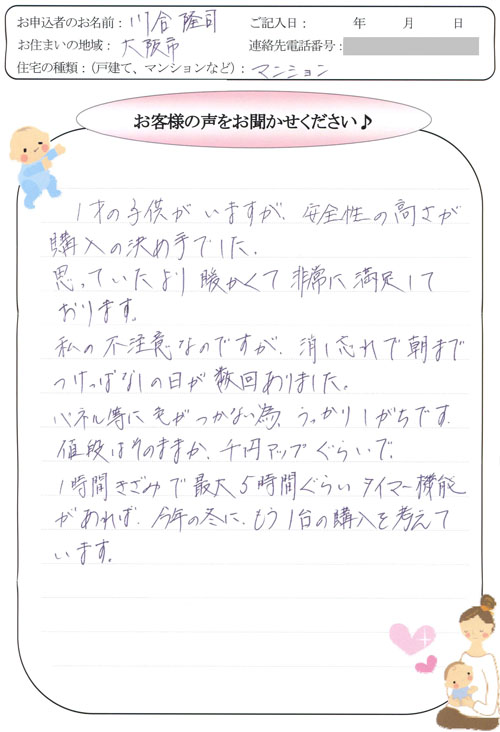 お申込者のお名前：川合 隆司
ご記入日：　年　月　日
お住まいの地域：大阪市
連絡先電話番号：
住宅の種類：（戸建て、マンションなど）：マンション
お客様の声をお聞かせください♪
1才の子供がいますが、安全性の高さが
購入の決め手でした。
思っていたより暖かくて非常に満足して
おります。
私の不注意なのですが、消し忘れで朝まで
つけっぱなしの日が数回ありました。
パネル等に色がつかない為、うっかりしがちです。
値段はそのままか、千円アップぐらいで、
1時間きざみで最大5時間ぐらいタイマー機能
があれば、今年の冬に、もう1台の購入を考えて
います。